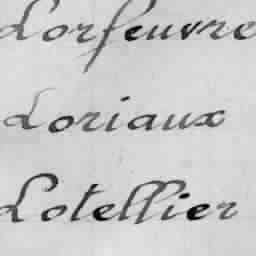 Lorfeuvre
Loriaux
Lotellier